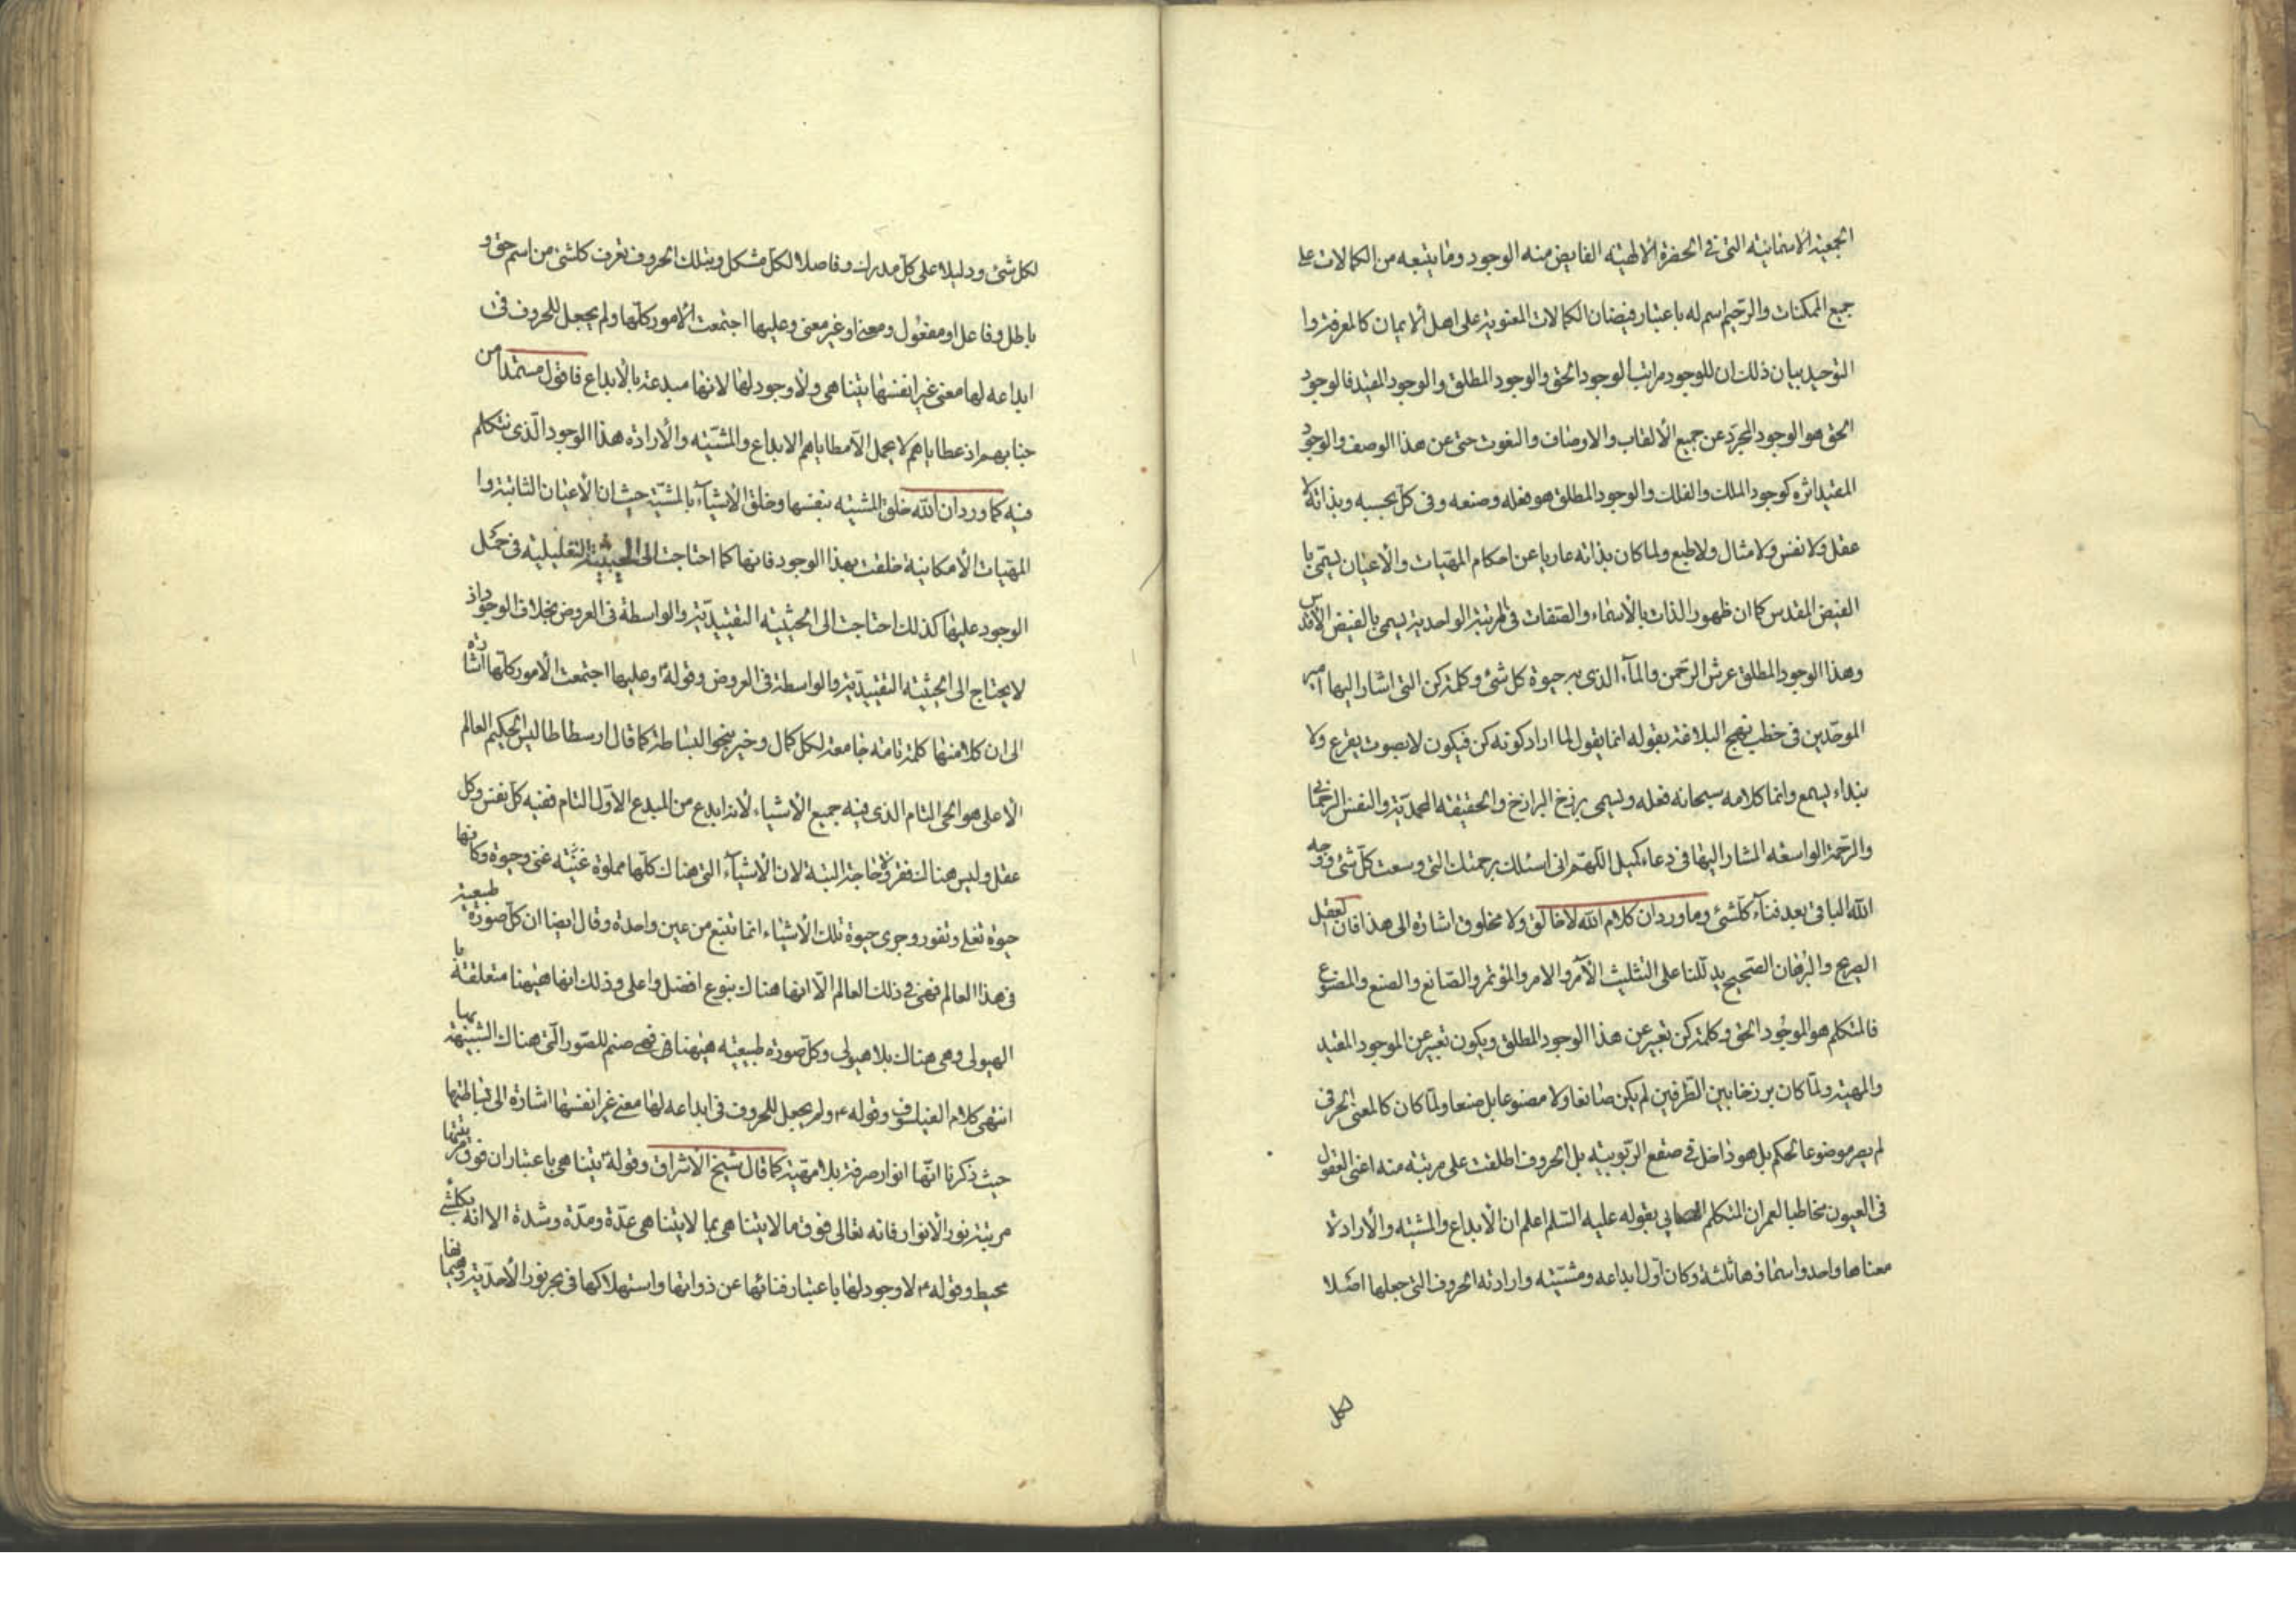 الجمعیة الاسمائیه التی فی الحضرة الالهیه الفایض منه الوجود وما یتبعه من الکمالات علی
جمیع الممکنات والرحیم اسم له باعتبار فیضان الکمالات المعنویة علی اهل الایمان کالمعرفة وا
التوحید بیان ذلک ان للوجود مراتب الوجود الحق والوجود المطلق والوجود المقید فالوجود
الحق هو الوجود المجرّد عن جمیع الالقاب والاوصاف والنعوت حتی عن هذا الوصف والوجود
المقید اثره کوجود الملک والفلک والوجود المطلق هو فعله وصنعه وفی کلّ بحسبه وبذاته لا
عقل ولا نفس ولا مثال ولا طبع ولما کان بذاته عاریا عن احکام المهیات والاعیان یسمّی با
الفیض المقدس کما ان ظهور الذات بالاسماء والصّفات فی المرتبة الواحدیة یسمی بالفیض الاقدس
وهذا الوجود المطلق عرش الرحمن والمآء الذی به حیوة کل شئ وکلمة کن التی اشار الیها امیر
الموحّدین فی خطب نهج البلاغة بقوله انما یقول لما اراد کونه کن فیکون لا بصوت یقرع ولا
بنداء یسمع وانما کلامه سبحانه فعله ویسمی برزخ البرازخ والحقیقه المحمدّیة والنفس الرحمانی
والرحمة الواسعه المشار الیها فی دعاء کمیل اللّهم انی اسئلک برحمتک التی وسعت کلّ شئ ووجه
الله الباقی بعد فنآء کلّشئ وما ورد ان کلام الله لا خالق ولا مخلوق اشارة الی هذا فان العقل
الصریح والبرهان الصّحیح یدلّنا علی التثلیث الآمر والامر والمؤتمر والصّانع والصنع والمصنوع
فالمتکلم هو الموجود الحق وکلمة کن تعبیر عن هذا الوجود المطلق ویکون تعبیر عن الموجود المقید
والمهیة ولمّا کان برزخا بین الطّرفین لم یکن صانعا ولا مصنوعا بل صنعا ولمّا کان کالمعنی الحرفی
لم یصر موضوعا لحکم بل هو داخل فی صقع الربّوبیّه بل الحروف اطلقت علی مرتبة منه اعنی العقول
فی العیون مخاطبا لعمران المتکلم الصابی بقوله علیه السّلم اعلم ان الابداع والمشیّه والارادة
معناها واحد واسمائها ثلثة وکان اول ابداعه ومشیّته وارادته الحروف التی جعلها اصلا
لکل
لکل شئ ودلیلا علی کلّ مدرک وفاصلا لکلّ مشکل وبتلک الحروف تعرف کلشئ من اسم حق و
باطل وفاعل او مفعول ومعنی او غیر معنی وعلیها اجتمعت الامور کلّها ولم یجعل للحروف فی
ابداعه لها معنی غیر انفسها یتناهی ولا وجود لها لانها مبدعة بالابداع فاقول مستمدّا من
جنابهم اذ عطایاهم لا یحمل الّا مطایاهم الابداع والمشیّه والارادة هذا الوجود الّذی نتکلم
فیه کما ورد ان الله خلق المشیّه بنفسها وخلق الاشیآء بالمشیّة حیث ان الاعیان الثابتة وا
المهیات الامکانیة خلقت بهذا الوجود فانها کما احتاجت الی الحیثیّة التعلیلیة فی حمل
الوجود علیها کذلک احتاجت الی الحیثیّه التقییدّیة والواسطة فی العروض بخلاف الوجود اذ
لا یحتاج الی الحیثیّه التقییدّیة والواسطة فی العروض وقوله ۴ وعلیها اجتمعت الامور کلّها اشارة
الی ان کلا منها کلمة تامّة جامعة لکل کمال وخیر بنحو البساطة کما قال ارسطاطالیس الحکیم العالم
الاعلی هو الحی التام الذی فیه جمیع الاشیاء لانه ابدع من المبدع الاوّل التام ففیه کلّ نفس وکل
عقل ولیس هناک فقر ولا حاجة البتة لان الاشیآء التی هناک کلّها مملوة غنّیه غنی وحیوة وکانها
حیوة تغلی وتفور وجری حیوة تلک الاشیاء انما تنبع من عین واحدة وقال ایضا ان کلّ صورة طبیعیة
فی هذا العالم فهی فی ذلک العالم الّا انها هناک بنوع افضل واعلی وذلک انها هیهنا متعلقة با
الهیولی وهی هناک بلا هیولی وکلّ صورة طبیعیّه هیهنا فهی صنم للصّور الّتی هناک الشبیهة بها
انتهی کلام الفیلسوف وقوله ۴ ولم یجعل للحروف فی ابداعه لها معنی غیر انفسها اشارة الی بساطتها
حیث ذکرنا انّها انوار صرفة بلا مهیّة کما قال شیخ الاشراق وقوله ۴ یتناهی باعتبار ان فوق مرتبتها
مرتبة نور الانوار فانه تعالی فوق ما لا یتناهی بما لا یتناهی عدّة ومدّة وشدة الا انه بکلشئ
محیط وقوله ۴ لا وجود لها باعتبار فنائها عن ذواتها واستهلاکها فی بحر نور الاحدّیة